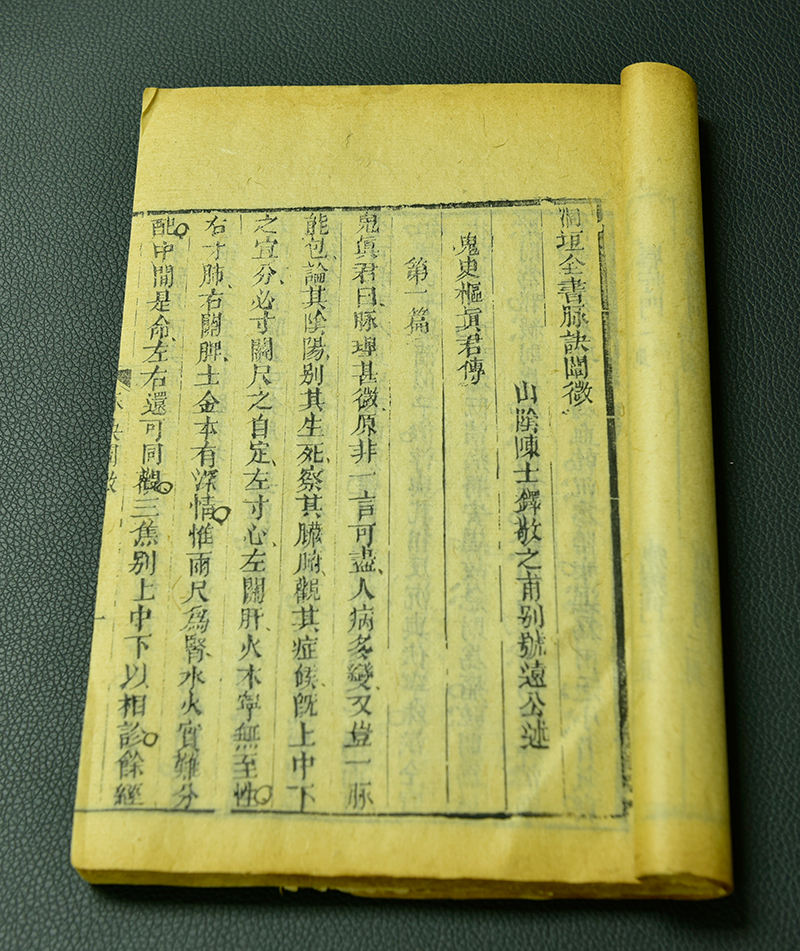 洞垣全書脉訣闡微
山陰陳士鐸敬之甫别號遠公述
鬼臾樞眞君傳
第一篇
鬼眞君曰脉理甚微原非一言可盡、人病多變、又豈一脉
能包、論其陰陽、别其生死、察其臟腑、觀其症候、旣上中下
之宜分、必寸關尺之自定、左寸心、左關肝、火木寧無至性。
右寸肺、右關脾、土金本有深情。惟兩尺爲腎、水火實難分
配。中間是命、左右還可同觀。三焦别上中下以相診。餘經